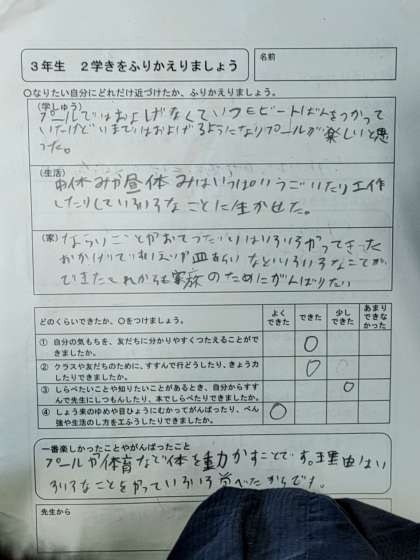 3年生 2学きをふりかえりましょう
名前
○なりたい自分にどれだけ近づけたか、ふりかえりましょう。
(学しゅう)
プールではおよげなくていつもビートばんをつかって
いたけどいまではおよげるようになりプールが楽しいと思
った。
(生活)
中休みや昼休みはいっぱいうごいたり工作
したりしていろいろなことに生かせた。
(家)
ならいごとがおてつだいはいろいろやってきた
おかたづけ皿あらいなどいろいろなことが
できたこれからも家族のためにがんばりたい
どのくらいできたか、○をつけましょう。
よくできた
できた
少しできた
あまりできなかった
① 自分の気もちを、友だちに分かりやすくつたえることがで
きましたか。
② クラスや友だちのために、すすんで行どうしたり、きょう力
したりできましたか。
③ しらべたいことや知りたいことがあるとき、自分からすす
んで先生にしつもんしたり、本でしらべたりできましたか。
④ しょう来のゆめや目ひょうにむかってがんばったり、べん
強や生活のし方をエふうしたりできましたか。
一番楽しかったことやがんばったこと
プールや体育などで体を動かすことです。理由はい
ろいろなことをやっていろいろ学べたからです。
先生から